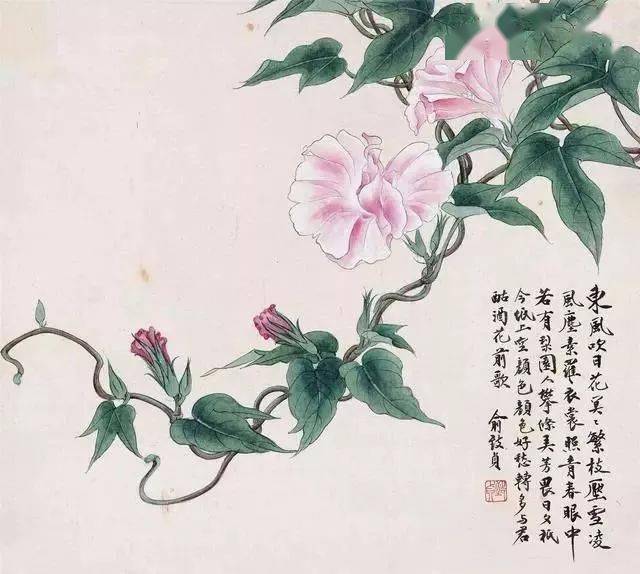 東風吹日花美〻繁枝壓雪凌
風塵素羅衣裳照青春眼中
若有梨園人攀條美芳畏日夕祇
今坻上空顔色顔色好愁轉多与君
酤酒花前歌
俞致貞